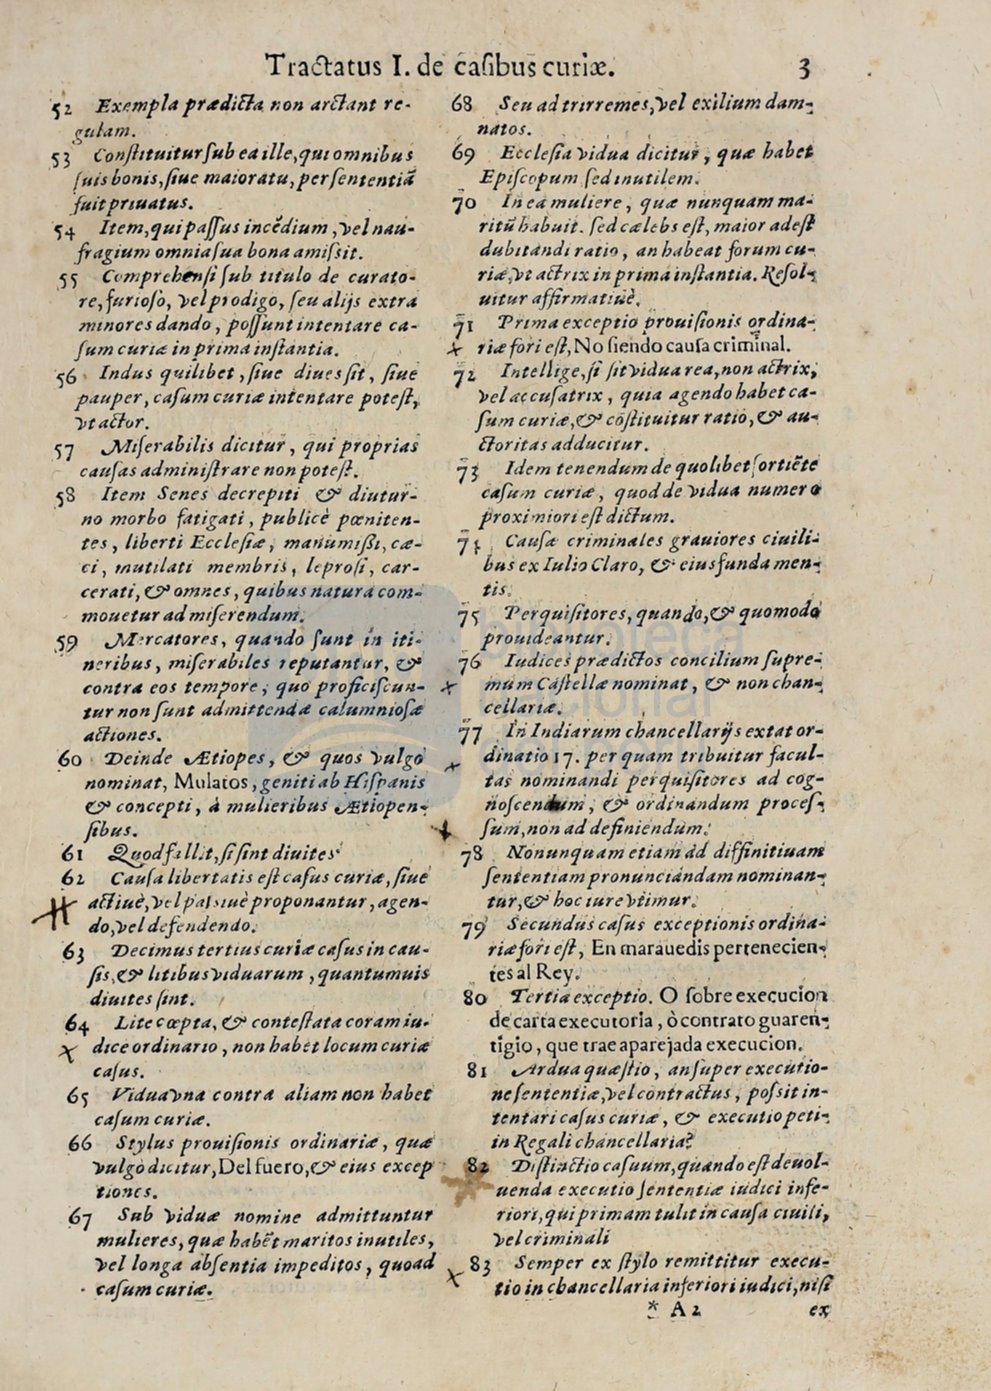 Tractatus I. de casibus curiæ. 3
52 Exempla prædicta non arctant re-
gulam.
53 Constituitur sub ea ille, qui omnibus
suis bonis, siue maioratu, per sententiā
fuit priuatus.
54 Item, qui passus incēdium, vel nau-
fragium omnia sua bona amisit.
55 Comprehensi sub titulo de curato-
re, furioso, vel prodigo, seu alijs extra
minores dando, possunt intentare ca-
sum curiæ in prima instantia.
56 Indus quilibet, siue diues sit, siue
pauper, casum curiæ intentare potest,
vt actor.
57 Miserabilis dicitur, qui proprias
causas administrare non potest.
58 Item Senes decrepiti & diutur-
no morbo fatigati, publicè pœniten-
tes, liberti Ecclesiæ, manumissi, cæ-
ci, mutilati membris, leprosi, car-
cerati, & omnes, quibus natura com-
mouetur ad miserendum.
59 Mercatores, quando sunt in iti-
neribus, miserabiles reputantur, &
contra eos tempore, quo proficiscun-
tur non sunt admittendæ calumniosæ
actiones.
60 Deinde Ætiopes, & quos vulgo
nominat, Mulatos, geniti ab Hispanis
& concepti, à mulieribus Ætiopen-
sibus.
61 Quod fallit, si sint diuites
62 Causa libertatis est casus curiæ, siue
actiuè, vel passiuè proponantur, agen-
do, vel defendendo.
63 Decimus tertius curiæ casus in cau-
sis, & litibus viduarum, quantumuis
diuites sint.
64 Lite cœpta, & contestata coram iu-
dice ordinario, non habet locum curiæ
casus.
65 Vidua vna contra aliam non habet
casum curiæ.
66 Stylus prouisionis ordinariæ, quæ
vulgò dicitur, Del fuero, & eius excep
tiones.
67 Sub viduæ nomine admittuntur
mulieres, quæ habēt maritos inutiles,
vel longa absentia impeditos, quoad
casum curiæ.
68 Seu ad trirremes, vel exilium dam-
natos.
69 Ecclesia vidua dicitur, quæ habet
Episcopum sed inutilem.
70 In ea muliere, quæ nunquam ma-
ritū habuit. sed cælebs est, maior adest
dubitandi ratio, an habeat forum cu-
riæ, vt actrix in prima instantia. Resol-
uitur affirmatiuè.
71 Prima exceptio prouisionis ordina-
riæ fori est, No siendo causa criminal.
72 Intellige, si sit vidua rea, non actrix,
vel accusatrix, quia agendo habet ca-
sum curiæ, & cōstituitur ratio, & au-
ctoritas adducitur.
73 Idem tenendum de quolibet sortiēte
casum curiæ, quod de vidua numero
proximiori est dictum.
74 Causæ criminales grauiores ciuili-
bus ex Iulio Claro, & eius fundamen-
tis.
75 Perquisitores, quando, & quomodo
prouideantur.
76 Iudices prædictos concilium supre-
mum Castellæ nominat, & non chan-
cellariæ.
77 In Indiarum chancellarijs extat or-
dinatio 17. per quam tribuitur facul-
tas nominandi perquisitores ad cog-
noscendum, & ordinandum proces-
sum, non ad definiendum.
78 Nonunquam etiam ad diffinitiuam
sententiam pronunciandam nominan-
tur, & hoc iure vtimur.
79 Secundus casus exceptionis ordina-
riæ fori est, En marauedis pertenecien-
tes al Rey.
80 Tertia exceptio. O sobre execucion
de carta executoria, ò contrato guaren-
tigio, que trae aparejada execucion.
81 Ardua quæstio, an super executio-
ne sententiæ, vel contractus, possit in-
tentari casus curiæ, & executio peti-
in Regali chancellaria?
82 Distinctio casuum, quando est deuol-
uenda executio sententiæ iudici infe-
riori, qui primam tulit in causa ciuili,
vel criminali
83 Semper ex stylo remittitur execu-
tio in chancellaria inferiori iudici, nisi
* A 2 ex